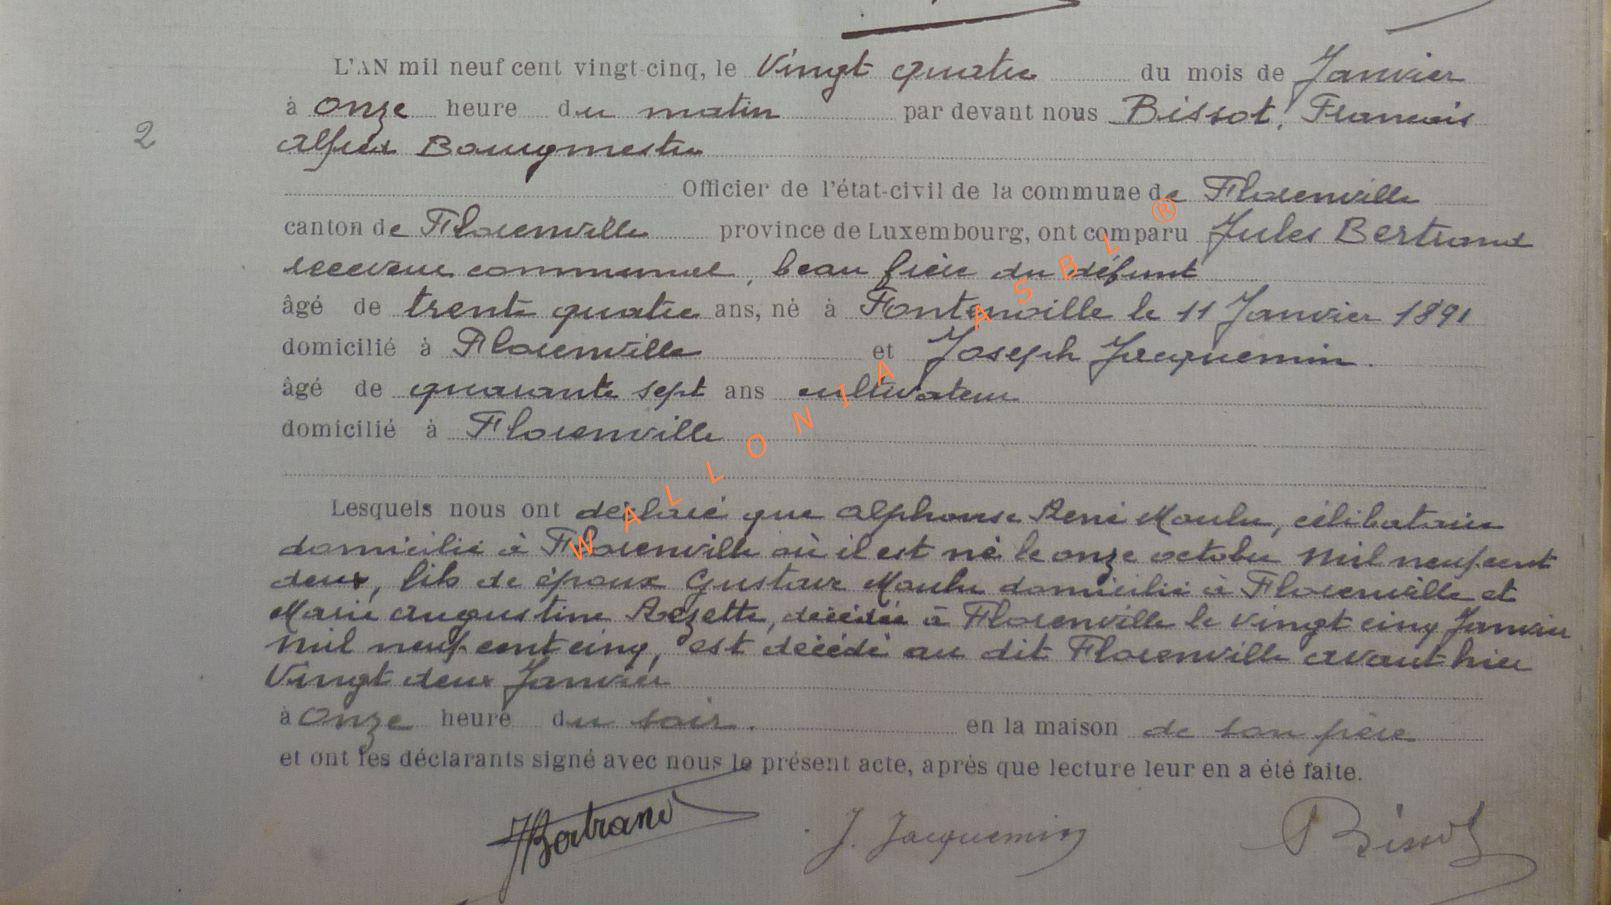 L'AN mil neuf cent vingt-cinq, le Vingt quatre du mois de Janvier
à onze heure du matin par devant nous Bissot, Francois
2
Alfred Bourgmestre
Officier de l'état-civil de la commune de Florenville
canton de Florenville province de Luxembourg, ont comparu Jules Bertrand
receveur communal, beau frère du défunt
âgé de trente quatre ans, né à Fontenoille le 11 Janvier 1891
domicilié à Florenville et Joseph Jacquemin.
âgé de quarante sept ans cultivateur
domicilié à Florenville
Lesquels nous ont déclaré que Alphonse René Maulu, célibataire
domicilié à Florenville où il est né le onze octobre mil neuf cent
deux, fils de époux Gustave Maulu domicilié à Florenville et
Marie Augustine Rezette, décédée à Florenville le vingt cinq Janvier
mil neuf cent cinq, est décédé au dit Florenville avant hier
Vingt deux Janvier
à onze heure du soir. en la maison de son père
et ont les déclarants signé avec nous le présent acte, après que lecture leur en a été faite.
JBertrand J. Jacquemin Bissot
WALLONIA ASBL ®